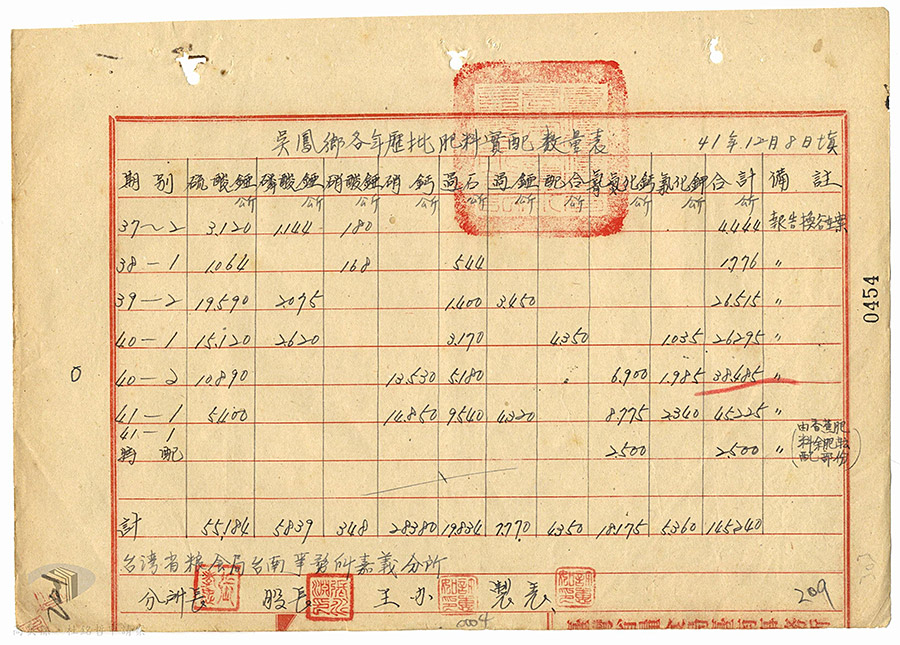 吳鳳鄉各年歷批肥料實配數量表 41年12月8日填
期別 硫酸錏 磷酸錏 硝酸錏 硝鈣 過石 過錏 配合 氰氮化鈣 氯化鉀 合計 備註
公斤 公斤 公斤 公斤 公斤 公斤 公斤 公斤 公斤 公斤
37~2 3.120 1.144 180 4.444 報告換谷生案
38-1 1.064 168 544 1.776 〃
39-2 19.590 2.075 1.400 3.450 26.515 〃
40-1 15.120 2.620 3.170 4.350 1.035 26.295 〃
40-2 10.890 13.530 5.180 6.900 1.985 38.485 〃
41-1 5.400 14.850 9.540 4.320 8.775 2.340 45.225 〃
41-1
特配 2.500 2.500 〃
計 55.184 5.839 348 28.380 19.834 7.770 4.350 18.175 5.360 145.240
台湾省粮食局台南事務所嘉義分所
分所長 股長 主办 製表
0454
0004
209